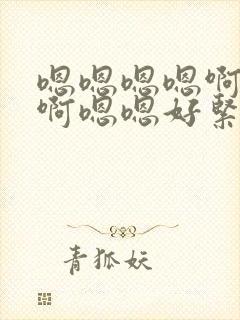 嗯嗯嗯嗯啊
啊嗯嗯好緊
青狐妖